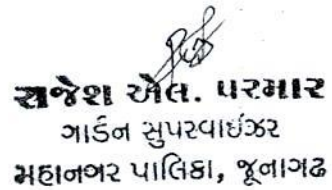 રાજેશ એલ. પરમાર
ગાર્ડન સુપરવાઇઝર
મહાનગર પાલિકા, જૂનાગઢ